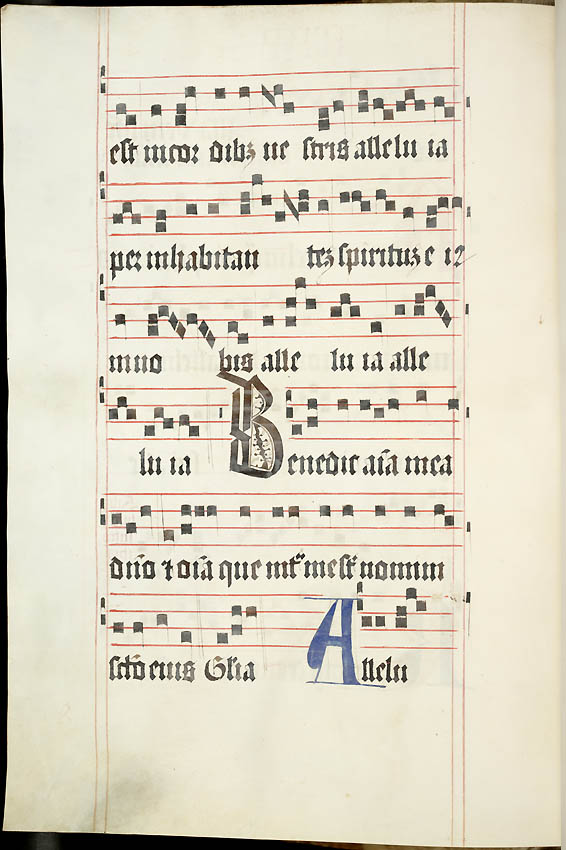 est in cor dibꝫ ue stris allelu ia
per inhabitan teꝫ spirituꝫ e iꝰ
in uo bis alle lu ia alle
lu ia Benedic aīa mea
dn̄o ⁊ oīa que int͛ me st͛ nomini
sctō eius Glīa Allelu